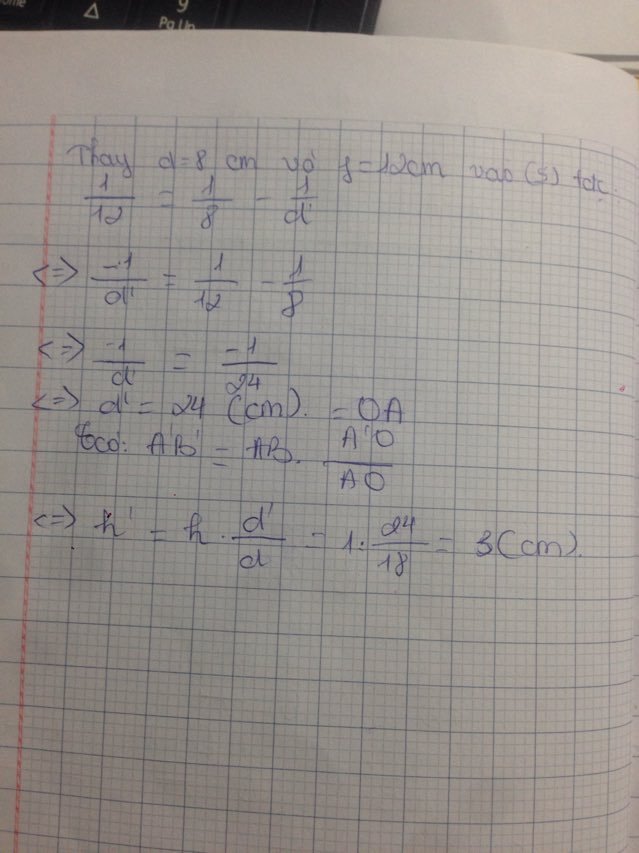 Thay d=8 cm và f=12cm vào (5) tdc.
1/12 = 1/8 - 1/d'
<=> -1/d' = 1/12 - 1/8
<=> -1/d = -1/24
<=> d' = 24 (cm). = OA
Tcó: A'B' = AB. A'O/AO
<=> h' = h . d'/d = 1. 24/18 = 3(cm).